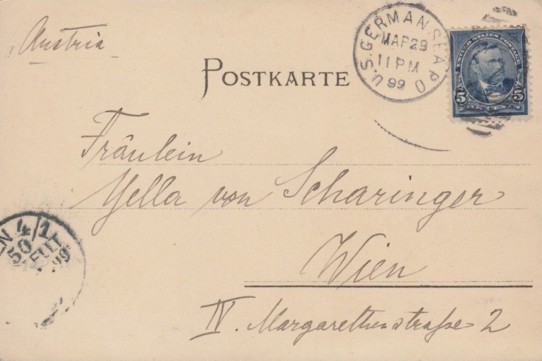 Austria
U.S. GERMAN SEA P.O
MAR 29
11 PM
99
POSTKARTE
5 5
Fräulein
Yella von Scharinger
Wien
IV. Margarethenstraße 2
4/1
50